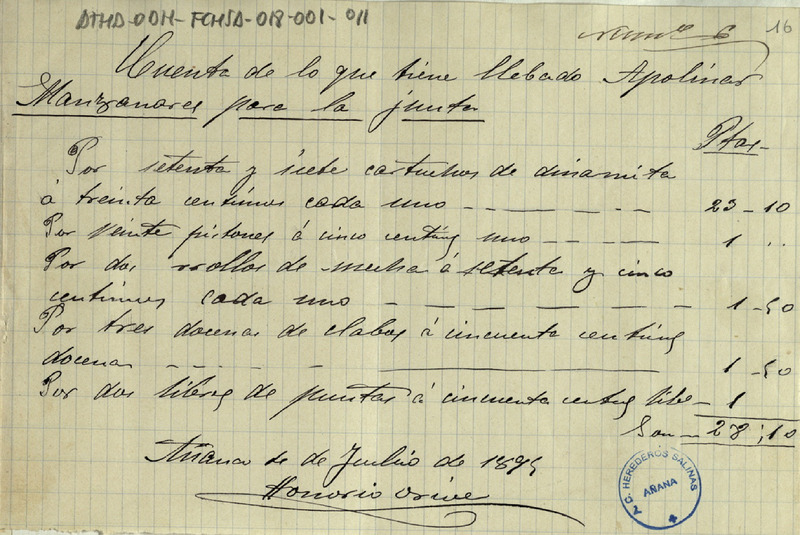 ATHA-DDH-FCHSA-018-001-011
16
Cuenta de lo que tiene llebado Apolinar
Manzanares para la junta
Ptas
Por setenta y siete cartuchos de dinamita
á treinta centimos cada uno 23-10
Por veinte pistones á cinco centims uno 1 ..
Por dos rrollos de mecha á setenta y cinco
centimos cada uno 1-50
Por tres docenas de clabos á cincuenta centims
docena 1-50
Por dos libras de puntas á cincuenta centims libr 1
Son 28,10
Añana de Julio de 189
Honorio Orive
C. HEREDEROS SALINAS
AÑANA